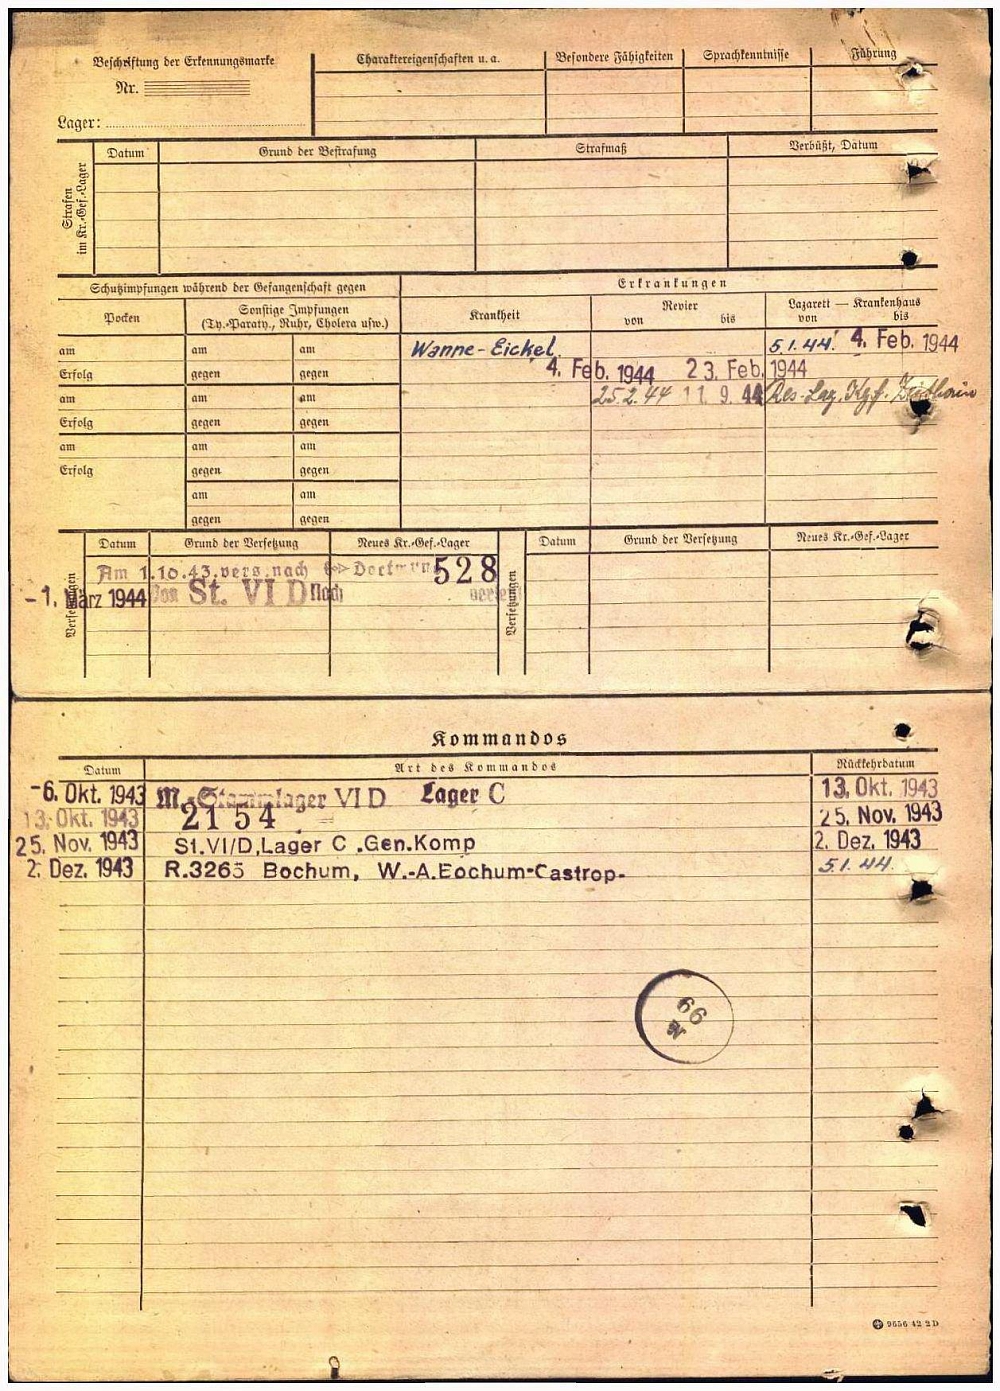 Beschriftung der Erkennungsmarke
Nr.
Lager:
Charaktereigenschaften u. a.
Besondere Fähigkeiten
Sprachkenntnisse
Führung
Strafen im Kr.-Gef.-Lager
Datum
Grund der Bestrafung
Strafmaß
Verbüßt, Datum
Schutzimpfungen während der Gefangenschaft gegen
Erkrankungen
Pocken
Sonstige Impfungen
(Ty.-Paraty., Ruhr, Cholera usw.)
Krankheit
Revier
von bis
Lazarett — Krankenhaus
von bis
am am am Wanne-Eickel 5.1.44. 4. Feb. 1944
Erfolg gegen gegen 4. Feb. 1944 23. Feb. 1944
am am am 25.2.44 11. 9. 44 Res-Laz. Kgf. Zeithain
Erfolg gegen gegen
am am am
Erfolg gegen gegen
am am
gegen gegen
Versetzungen
Datum Grund der Versetzung Neues Kr.-Gef.-Lager
Am 1.10.43 vers. nach Dortmund 528
-1. März 1944 Von St. VI D nach
Versetzungen
Datum Grund der Versetzung Neues Kr.-Gef.-Lager
Kommandos
Datum Art des Kommandos Rückkehrdatum
-6. Okt. 1943 M.-Stammlager VI D Lager C 13. Okt. 1943
13. Okt. 1943 2154 25. Nov. 1943
25. Nov. 1943 St.VI/D,Lager C .Gen.Komp 2. Dez. 1943
2. Dez. 1943 R.3265 Bochum, W.-A.Bochum-Castrop- 5.1.44.
66
9656 42 2 D